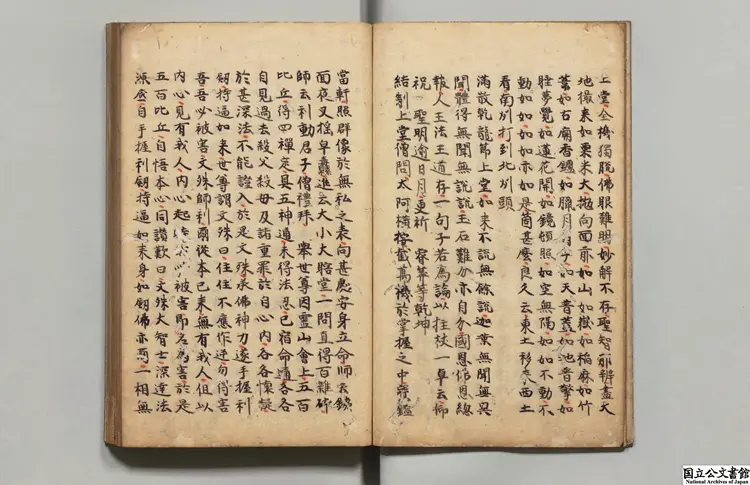 上堂全機獨脫佛眼難覩妙解不存聖智那辨盡大
地撮來如粟米大抛向面前如山如嶽如稻麻如竹
葦如古廟香爐如臘月扇子如天普蓋如地普擎如
睡夢覺如蓮花開如鏡頓照如空無隔如如不動不
動如如如如亦如是箇甚麼良久云東土移來西土
看南州打到北州頭
滿散乾龍節上堂如來不説無餘説迦葉無聞無異
聞體得無聞無説説玉石難分亦自分國恩佛恩總
報人王法王道存一句子若為論以拄杖一卓云仰
祝 聖明逾日月更祈 睿筭等乾坤
結制上堂僧問太阿横按截萬機於掌握之中寶鑑
當軒照群像於無私之表向甚處安身立命師云鏡
面夜叉揺 進云大小大 堂一問直得百雜碎
師云利動君子僧禮拜 舉世尊因靈山會上五百
比丘得四禪定具五神通未得法忍已宿命通各各
自見過去殺父殺母及諸重罪於自心内各各懷疑
於甚深法不能證入於是文殊承佛神力遂手握利
劍持逼如來世尊謂文殊曰住住不應作逆勿得害
吾吾必被害文殊師利爾從本已來無有我人但以
内心見有我人内心起時我必被害即名為害於是
五百比丘自悟本心同讚歎曰文殊大智士深達法
源底自手握利劍持逼如來身如劍佛亦爾一相無
国立公文書館
National Archives of Japan